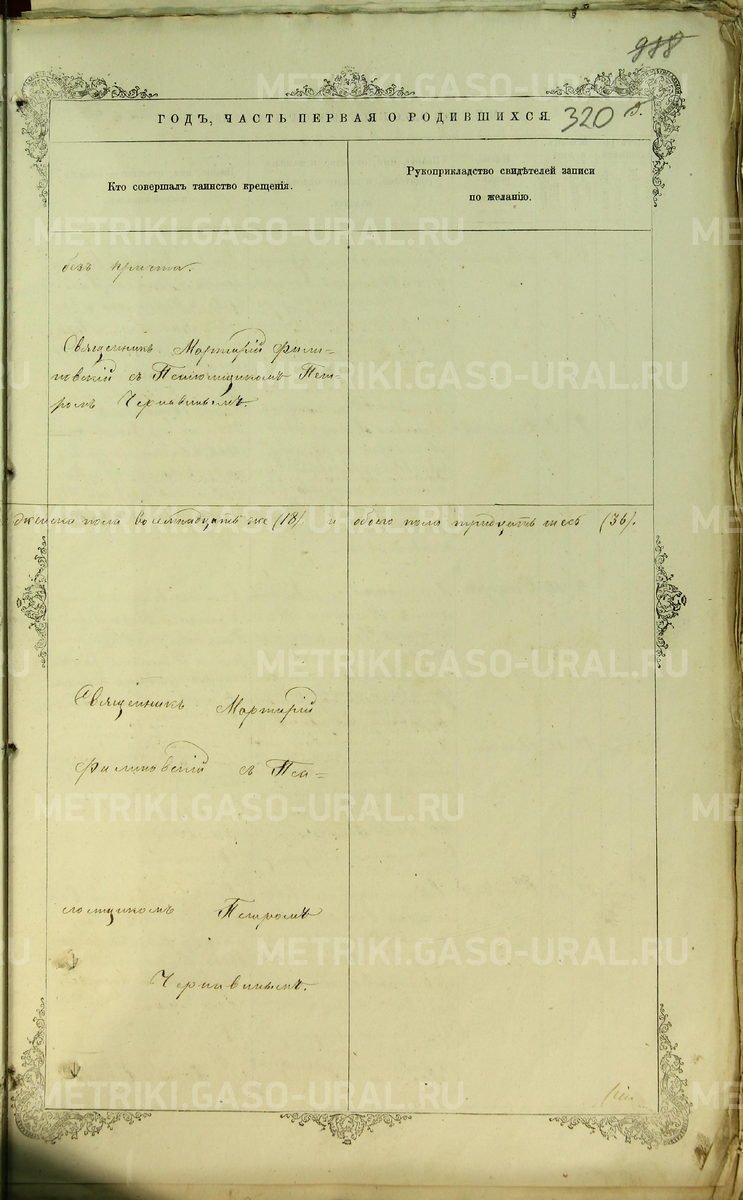 988
ГОДЪ, ЧАСТЬ ПЕРВАЯ О РОДИВШИХСЯ.
320
Кто совершалъ таинство крещенія.
Рукоприкладство свидѣтелей записи
по желанію.
безъ причта.
Священникъ Мартирій Фили-
повскій съ Псаломщикомъ Пет-
ромъ Чернавинымъ.
женска пола восемнадцать же (18) и обоего пола тридцать шесь (36).
Священникъ Мартирій
Филиповскій съ Пса-
ломщикомъ Петромъ
Чернавинымъ.
METRIKI.GASO-URAL.RU